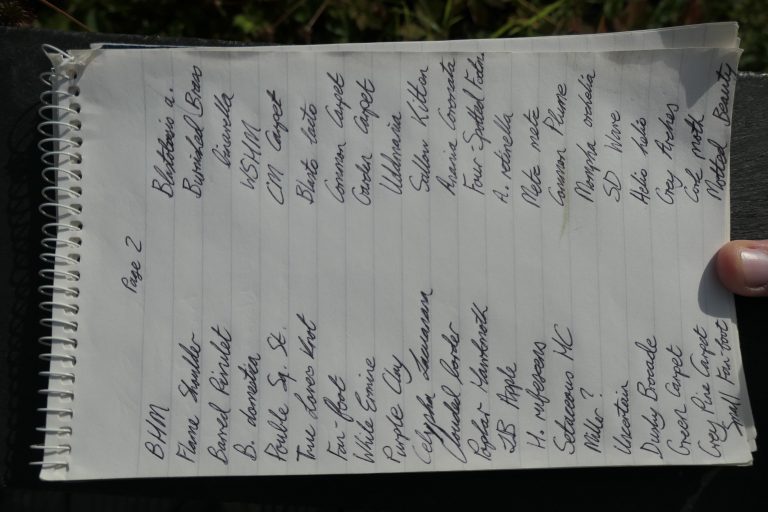 Page 2
BHM
Flame Shoulder
Barred Rivulet
B. domestica
Double Sq. St.
True Lovers Knot
Fan-foot
White Ermine
Purple Clay
Celypha
Clouded Border
Poplar Hawkmoth
LB Apple
H. rufescens
Setaceous HC
Miller?
Uncertain
Dusky Brocade
Green Carpet
Grey Pine Carpet
Small Fan-foot
Blastobasis a.
Burnished Brass
WSHM
CM Carpet
Blasto
Common Carpet
Garden Carpet
Udea
Sallow Kitten
Four Spotted
A. retinella
Meta meta
Common Plume
Mompha
SD Wave
Grey Arches
moth
Mottled Beauty